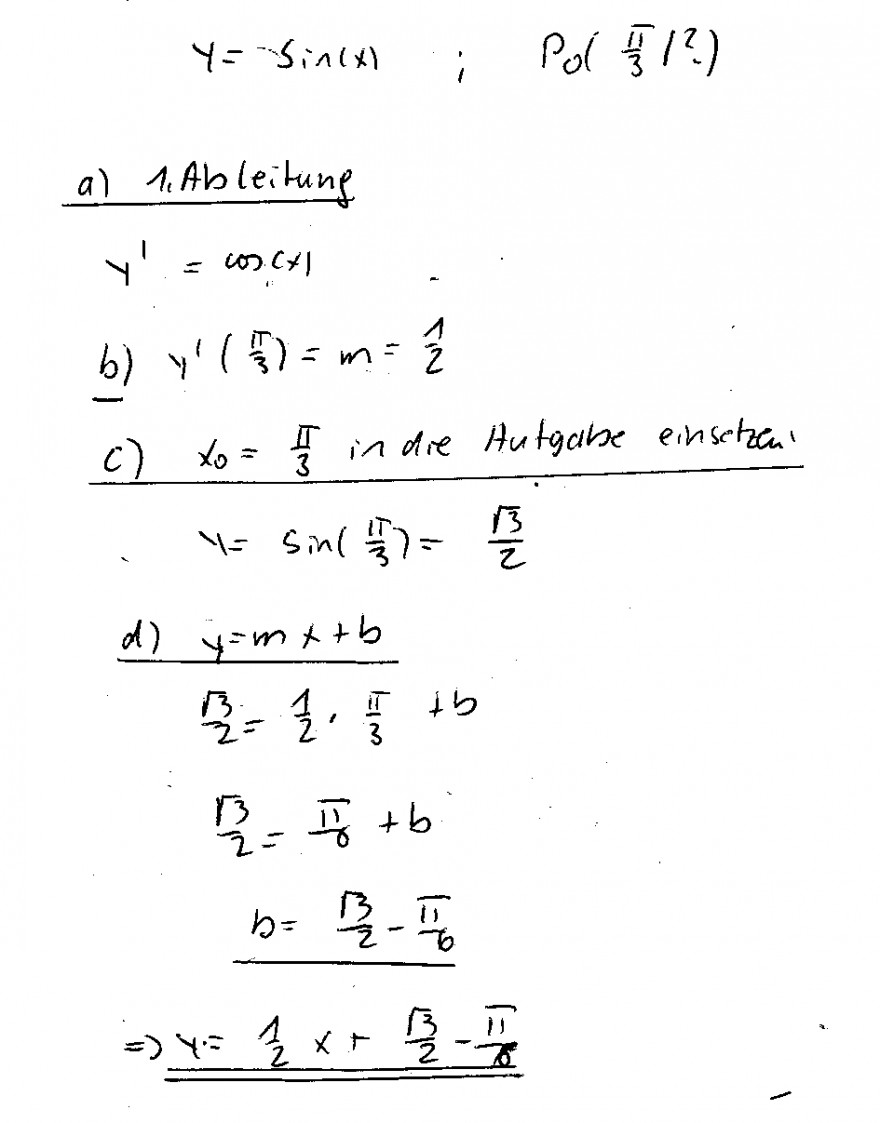 y = sin(x) ; P₀( π/3 / ? )
a) 1. Ableitung
y' = cos(x)
b) y' ( π/3 ) = m = 1/2
c) x₀ = π/3 in die Aufgabe einsetzen:
y = sin( π/3 ) = √3/2
d) y = m x + b
√3/2 = 1/2 · π/3 + b
√3/2 = π/6 + b
b = √3/2 - π/6
=> y = 1/2 x + √3/2 - π/6